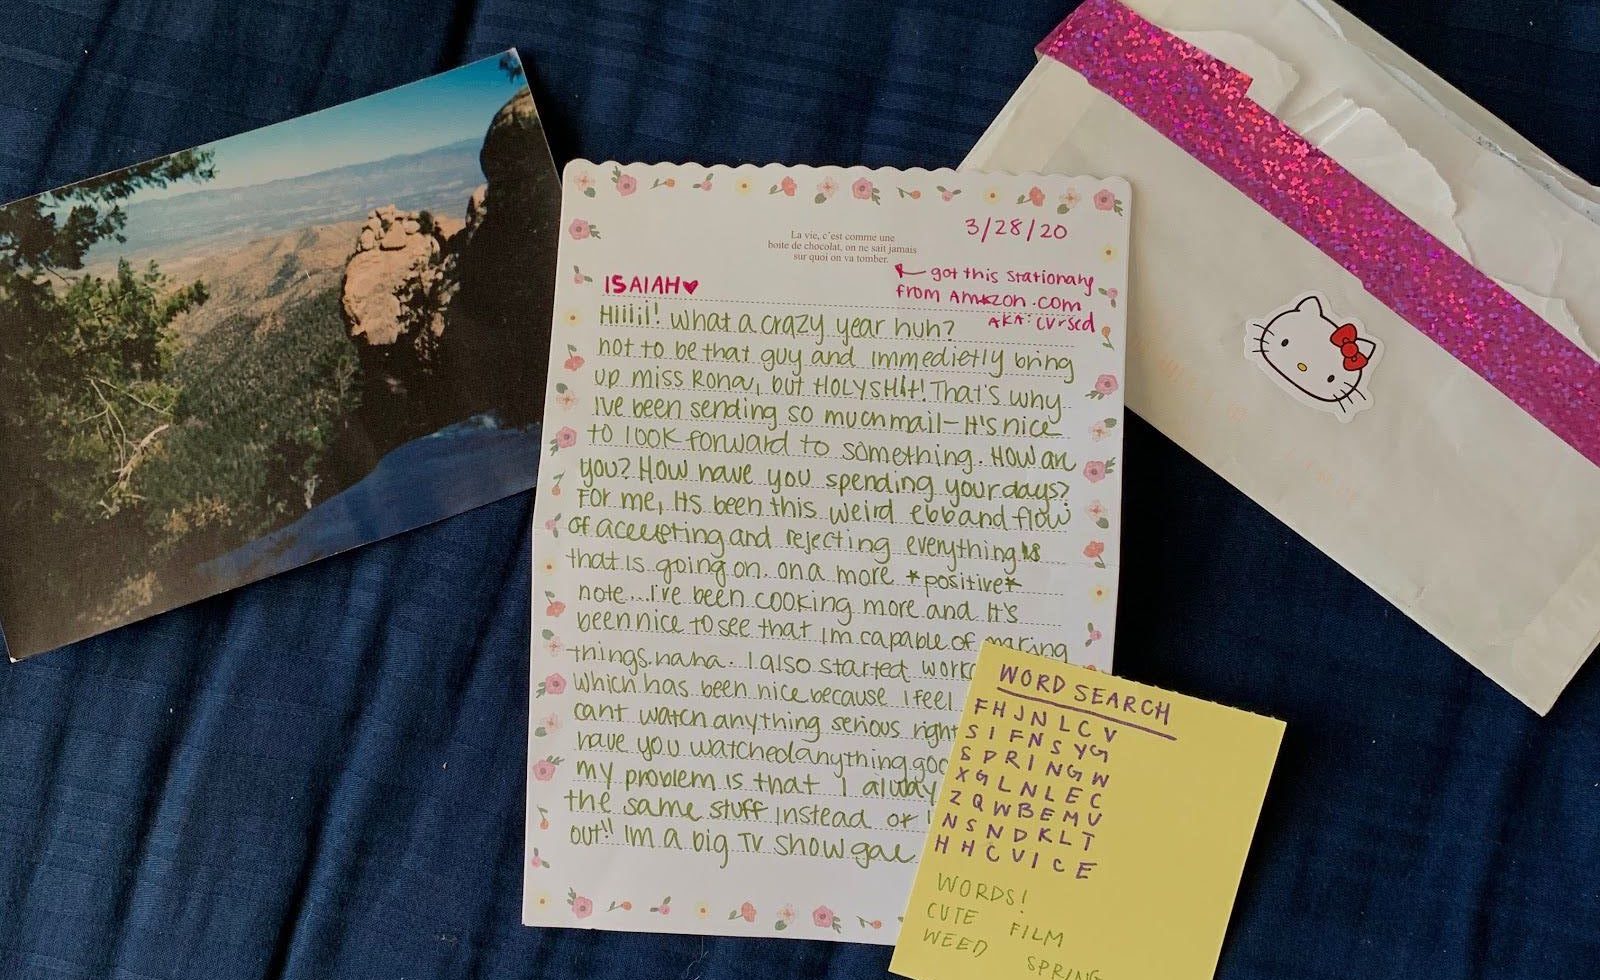 3/28/20
La vie, c'est comme une
boite de chocolat, on ne sait jamais
sur quoi on va tomber.
got this stationary
from Amazon.com
AKA: CURSED
ISAIAH♥
Hiiiii! What a crazy year huh?
not to be that guy and immedietly bring
up miss Rona, but HOLYSHIt! That's why
I've been sending so much mail- It's nice
to look forward to something. How are
you? How have you spending your days?
For me, Its been this weird ebb and flow
of accepting and rejecting everything
that is going on. on a more *positive*
note... I've been cooking more and It's
been nice to see that Im capable of making
things. haha. I also started
which has been nice because I feel
cant watch anything serious right
have you watched anything
my problem is that I
the same stuff instead of
out!! Im a big TV show gal
WORD SEARCH
F H J N L C V
S I F N S Y G
S P R I N G W
X G L N L E C
Z Q W B E M U
N S N D K L T
H H C V I C E
WORDS!
CUTE FILM
WEED SPRING